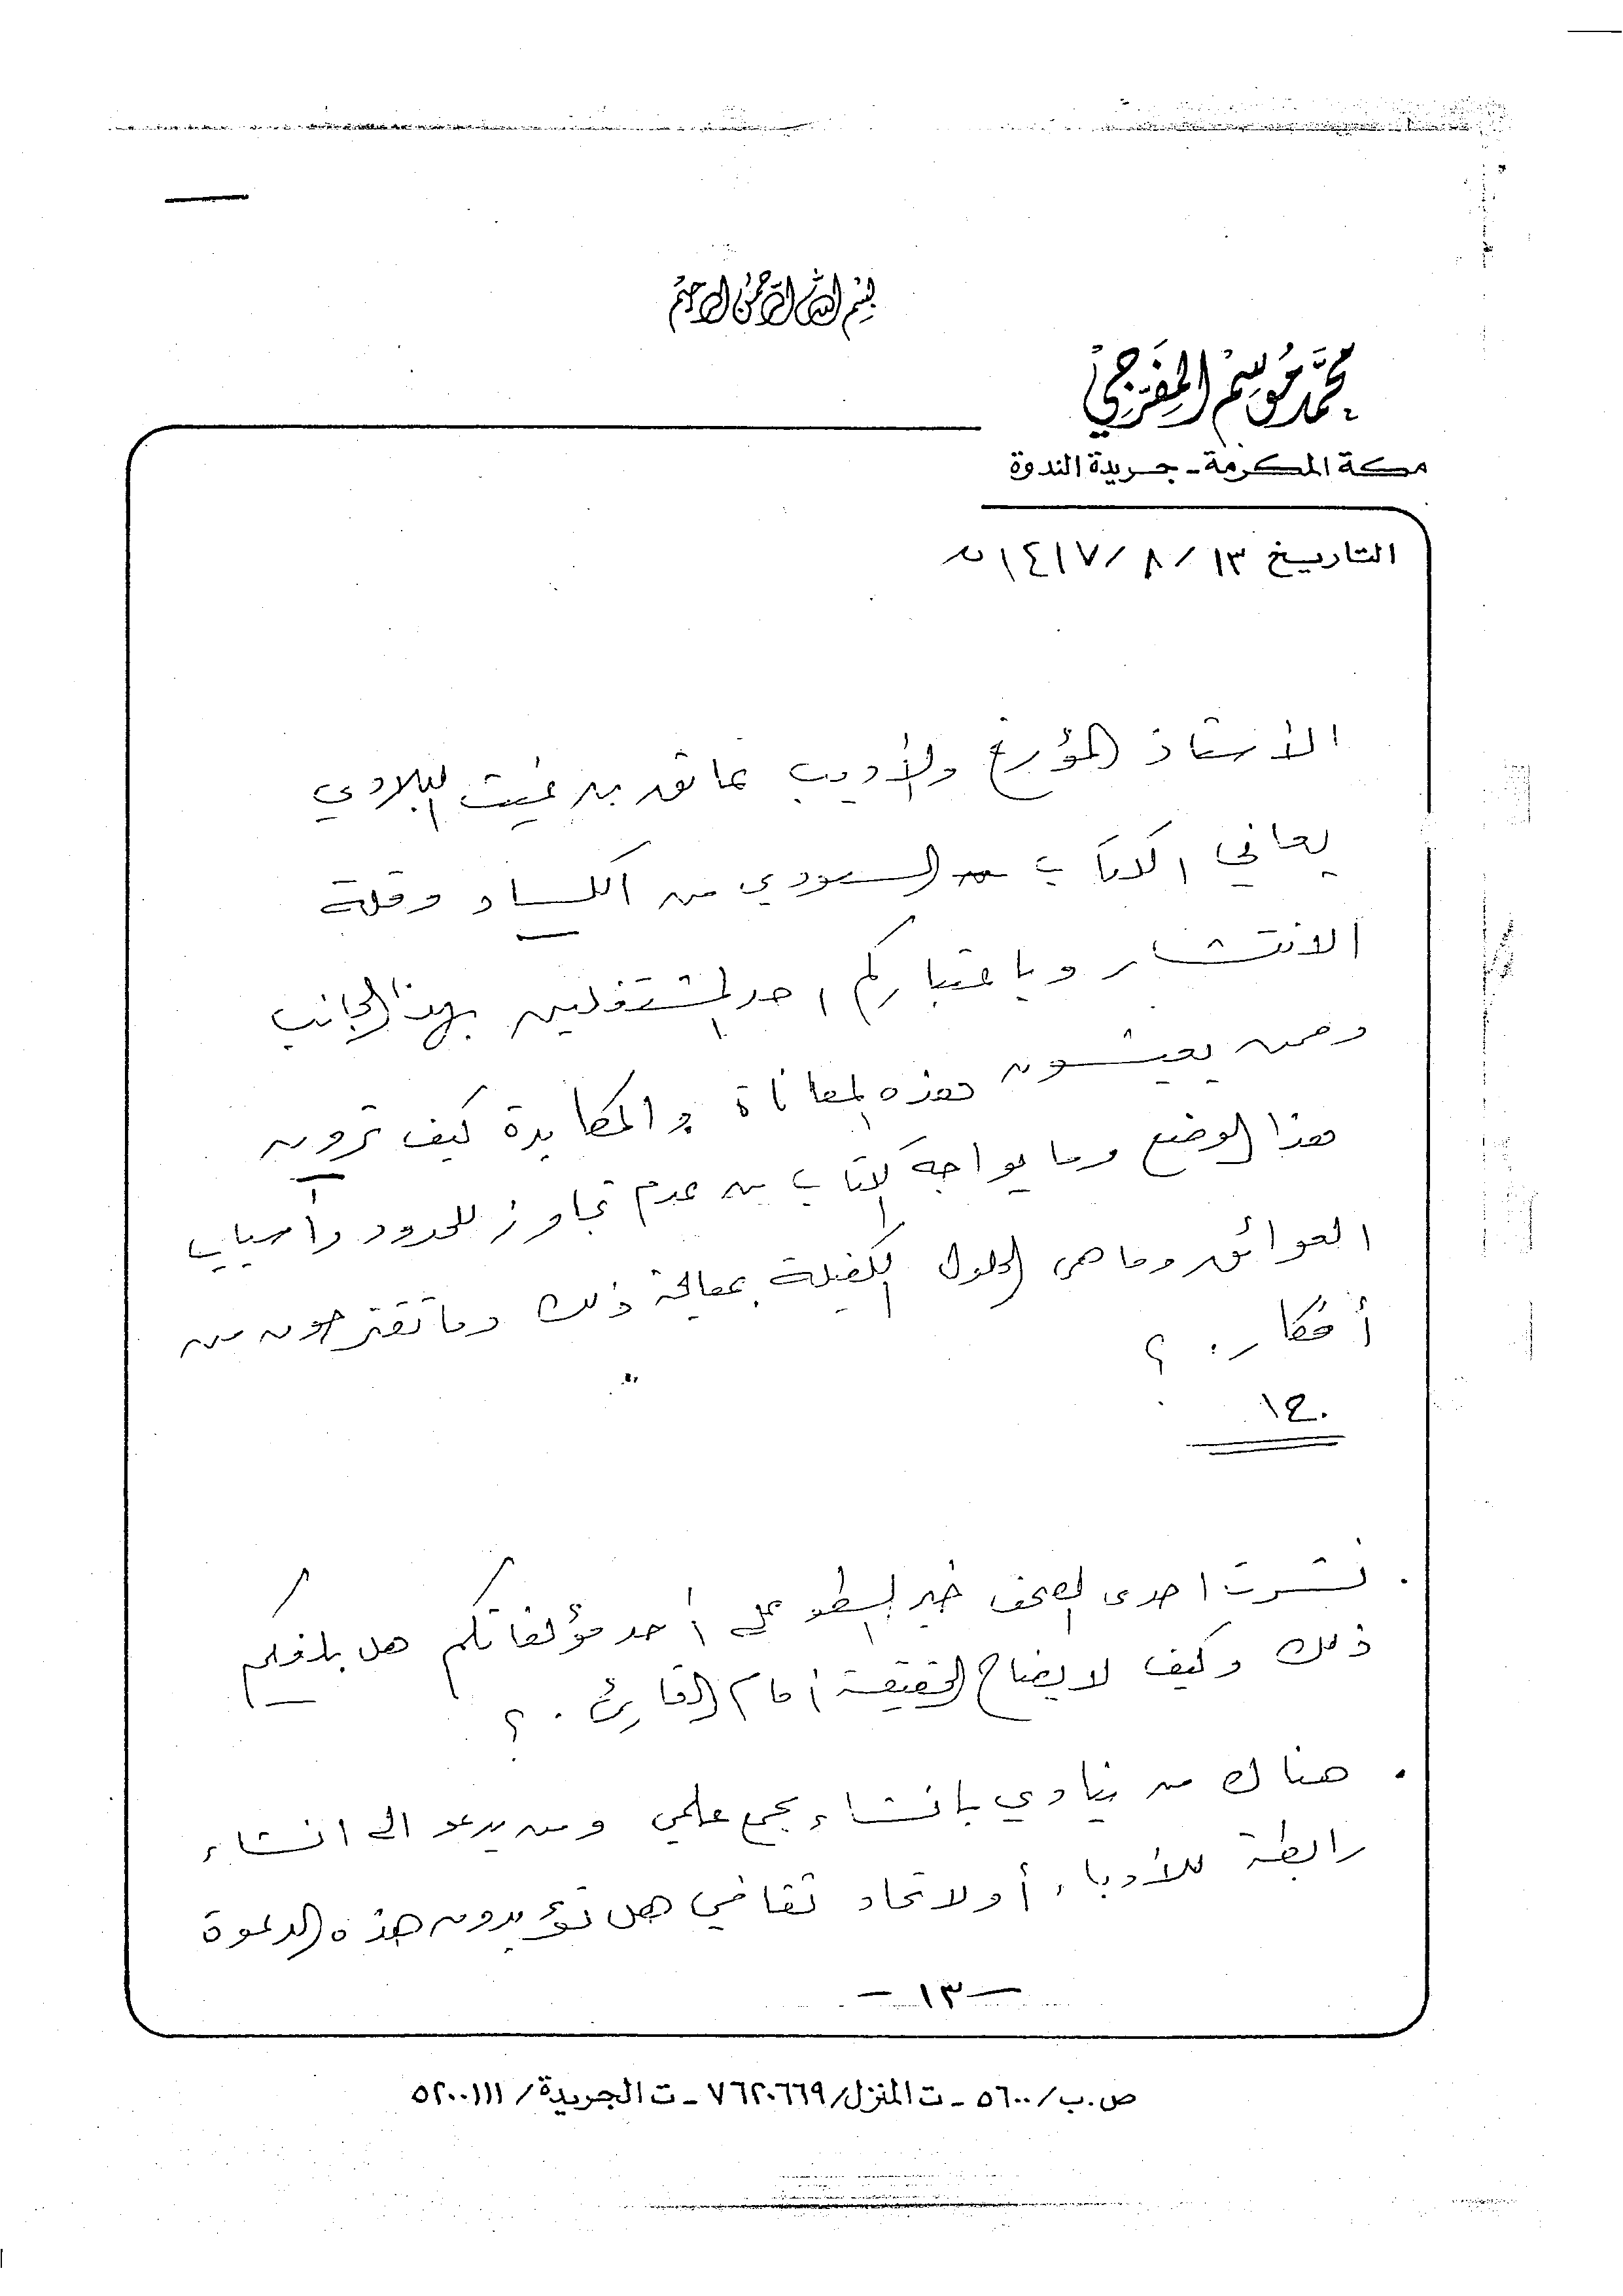 بسم الله الرحمن الرحيم
محمد موسم المفرجي
مكة المكرمة - جريدة الندوة
التاريخ ١٣ / ٨ / ١٤١٧ هـ
الأستاذ المؤرخ والأديب عاتق بن غيث البلادي
يعاني الكتاب السعودي من الكساد وقلة
الانتشار وباعتباركم احد المشتغلين بهذا الجانب
وممن يعيشون هذه المعاناة والمكابدة كيف ترون
هذا الوضع وما يواجه الكتاب من عدم تجاوز للحدود وأسباب
العوائق وما هي الحلول الكفيلة بمعالجة ذلك وما تقترحون من
أفكار . ؟
. نشرت احدى الصحف خبر السطو على أحد مؤلفاتكم هل بلغكم
ذلك وكيف لايضاح الحقيقة أمام القارئ . ؟
. هناك من ينادي بانشاء مجمع علمي ومن يدعو الى انشاء
رابطة للأدباء أو لاتحاد ثقافي هل تؤيدون هذه الدعوة
- ١٣ -
ص.ب/٥٦٠٠ - ت المنزل/٧٦٢٠٦٦٩ - ت الجريدة/٥٢٠٠١١١